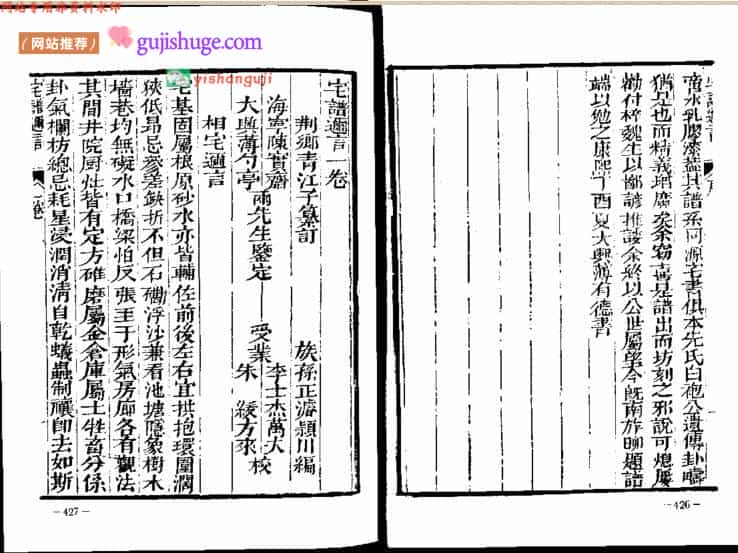 网站专用非资料水印
(网站推荐)
gujishuge.com
yishanguji
帝水乳膠漆蓋其譜系同源宅書俱本先氏白袍公遺傳卦疇
猶是也而精義增廣矣余竊喜是譜出而坊刻之邪說可熄屢
勸付梓魏生以鄙諺推諉余終以公世屬望今旣南旋聊題諸
端以勉之康熙丁酉夏大興薄有德書
-426-
宅譜邇言一卷
荆鄉青江子纂訂 族孫正濾頴川編
海寧陳實齋 李士杰萬大
大興薄勺亭 兩先生鑒定 受業 朱綬方來 校
相宅邇言
宅基固屬根原砂水亦皆輔佐前後左右宜拱抱環圍濶
狹低昂忌參差缺折不但石礅浮沙兼看池塘隱象樹木
墻巷均無礙水口橋梁怕反張至于形氣房廊各有觀法
其間井院厨灶皆有定方碓磨屬金倉庫屬土牲畜分係
卦氣欄枋總忌耗星浸潤消淸自乾蟻蟲制禳卽去如斯
宅譜邇言 一卷
-427-